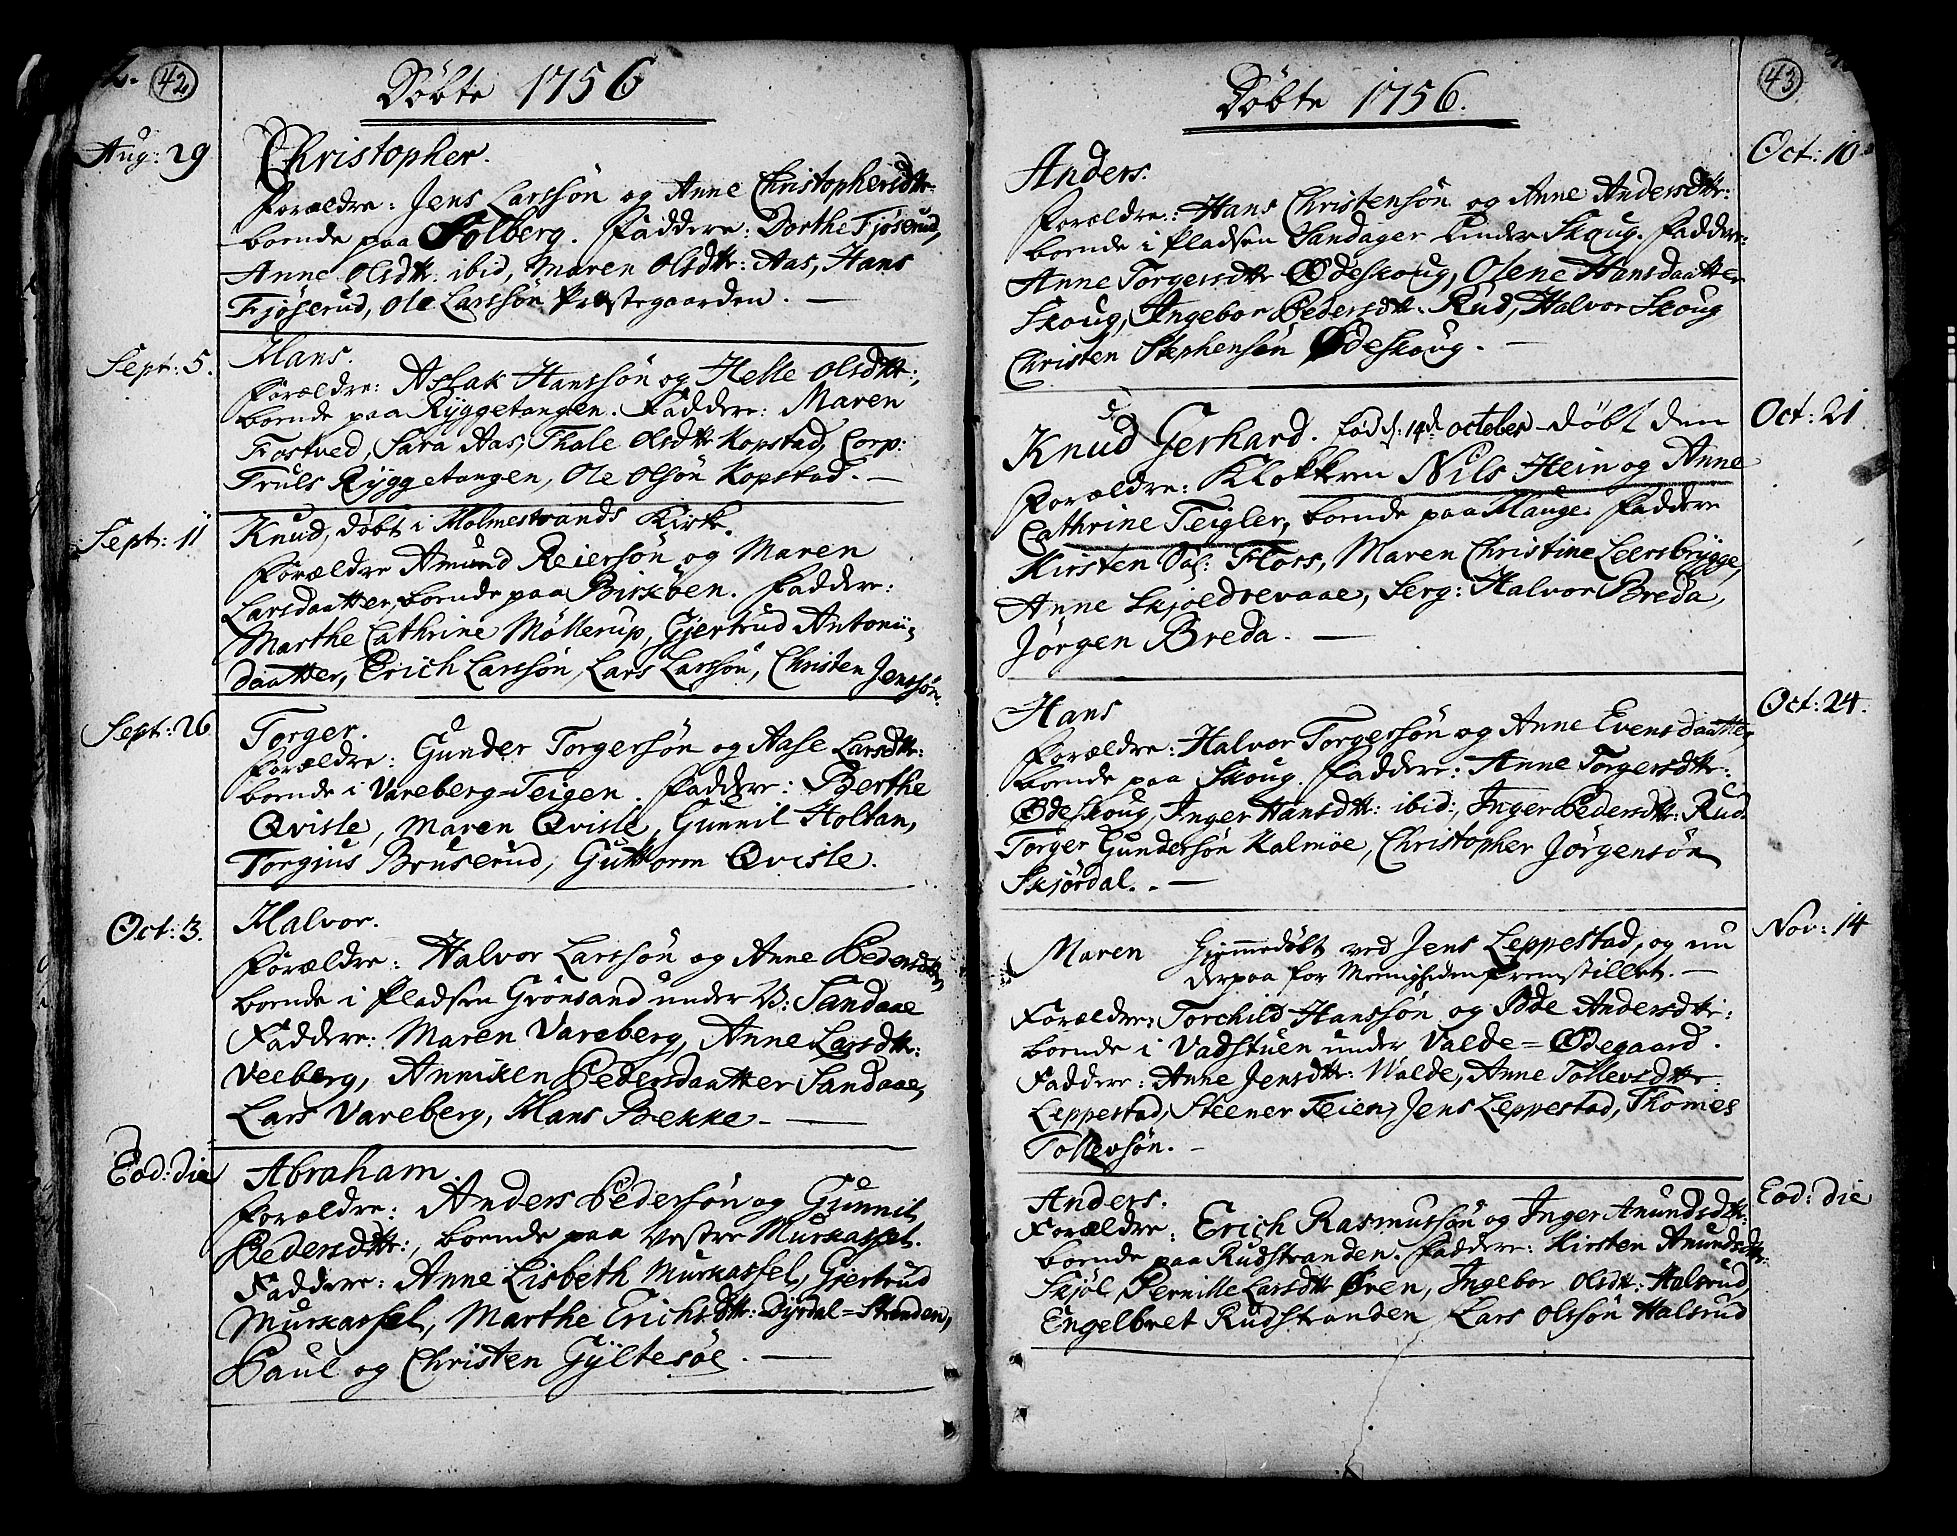 42
Döbte 1756
Aug: 29
Christopher.
Forældre: Jens Larssön og Anne Christophersdtr:
boende paa Solberg. Faddere: Dorthe Fjöserud,
Anne Olsdtr: ibid, Maren Olsdtr: Aas, Hans
Fjöserud, Ole Larssön Præstegaarden. —
Sept: 5.
Hans.
Forældre: Aslak Hanssön og Helle Olsdtr:,
boende paa Ryggetangen. Faddere: Maren
Fostved, Sara Aas, Thale Olsdtr Kopstad, Corp:
Truls Ryggetangen, Ole Olsön Kopstad. —
Sept: 11
Knud, döbt i Holmestrands Kirke.
Forældre Amund Reiersön og Maren
Larsdaatter, boende paa Birköen. Faddere:
Marthe Cathrine Möllerup, Gjertrud Antonii-
daatter, Erich Larssön, Lars Larssön, Christen Jenssön.
Sept: 26
Torger.
Forældre: Gunder Torgersön og Aase Larsdtr:
boende i Vareberg-Teigen. Faddere: Berthe
Qvisle, Maren Qvisle, Gunnil Holtan,
Torgius Bruserud, Guttorm Qvisle.
Oct: 3.
Halvor.
Forældre: Halvor Larssön og Anne Pedersdtr,
boende i Pladsen Grönsand under V: Sandaae
Faddere: Maren Vareberg, Anne Larsdtr:
Veeberg, Anniken Pedersdaatter Sandaae,
Lars Vareberg, Hans Bekke. —
Eod: die
Abraham.
Forældre: Anders Pedersön og Gunnil
Pedersdtr:, boende paa Vestre Murkassel.
Faddere: Anne Lisbeth Murkassel, Gjertrud
Murkassel, Marthe Erichsdtr: Dyrdal=Stranden,
Paul og Christen Gyltesöe. —
43
Döbte 1756.
Oct: 10
Anders.
Forældre: Hans Christensön og Anne Andersdtr:
boende i Pladsen Sandager under Skoug. Faddere:
Anne Torgersdtr Ödeskoug, Olene Hansdaatter
Skoug, Ingebor Pedersdtr: Rud, Halvor Skoug
Christen Stephensön Ödeskoug. —
Oct: 21
Knud Gerhard. född d: 14de october döbt den
Forældre: Klokkeren Nils Hein og Anne
Cathrine Teigler, boende paa Hauge. Faddere
Kirsten Sal: Flors, Maren Christine Leersbrygge,
Anne Skjoedrevaae, Serg: Halvor Breda,
Jörgen Breda. —
Oct: 24.
Hans
Forældre: Halvor Torgerssön og Anne Evensdaatter,
boende paa Skoug. Faddere: Anne Torgersdtr:
Ödeskoug, Inger Hansdtr: ibid:, Inger Pedersdtr: Rud
Torger Gundersön Kalmöe, Christopher Jörgensön
Skjördal. —
Nov: 14
Maren Hjemmedöbt ved Jens Leppestad, og nu
derpaa for Meenigheden fremstillet. —
Forældre: Torchild Hanssön og Ide Andersdtr:
boende i Vadstuen under Valde=Ödegaard.
Faddere: Anne Jensdtr: Walde, Anne Tollevsdtr:
Leppestad, Steener Teien, Jens Leppestad, Thomes
Tollevsön. —
Eod: die
Anders.
Forældre: Erich Rasmussön og Inger Amundsdtr:
boende paa Rudstranden. Faddere: Kirsten Amundsdtr:
Skjöl, Pernille LarsdtrÖren, Ingebor Olsdtr: Halsrud,
Engelbret Rudstranden, Lars Olssön Halsrud